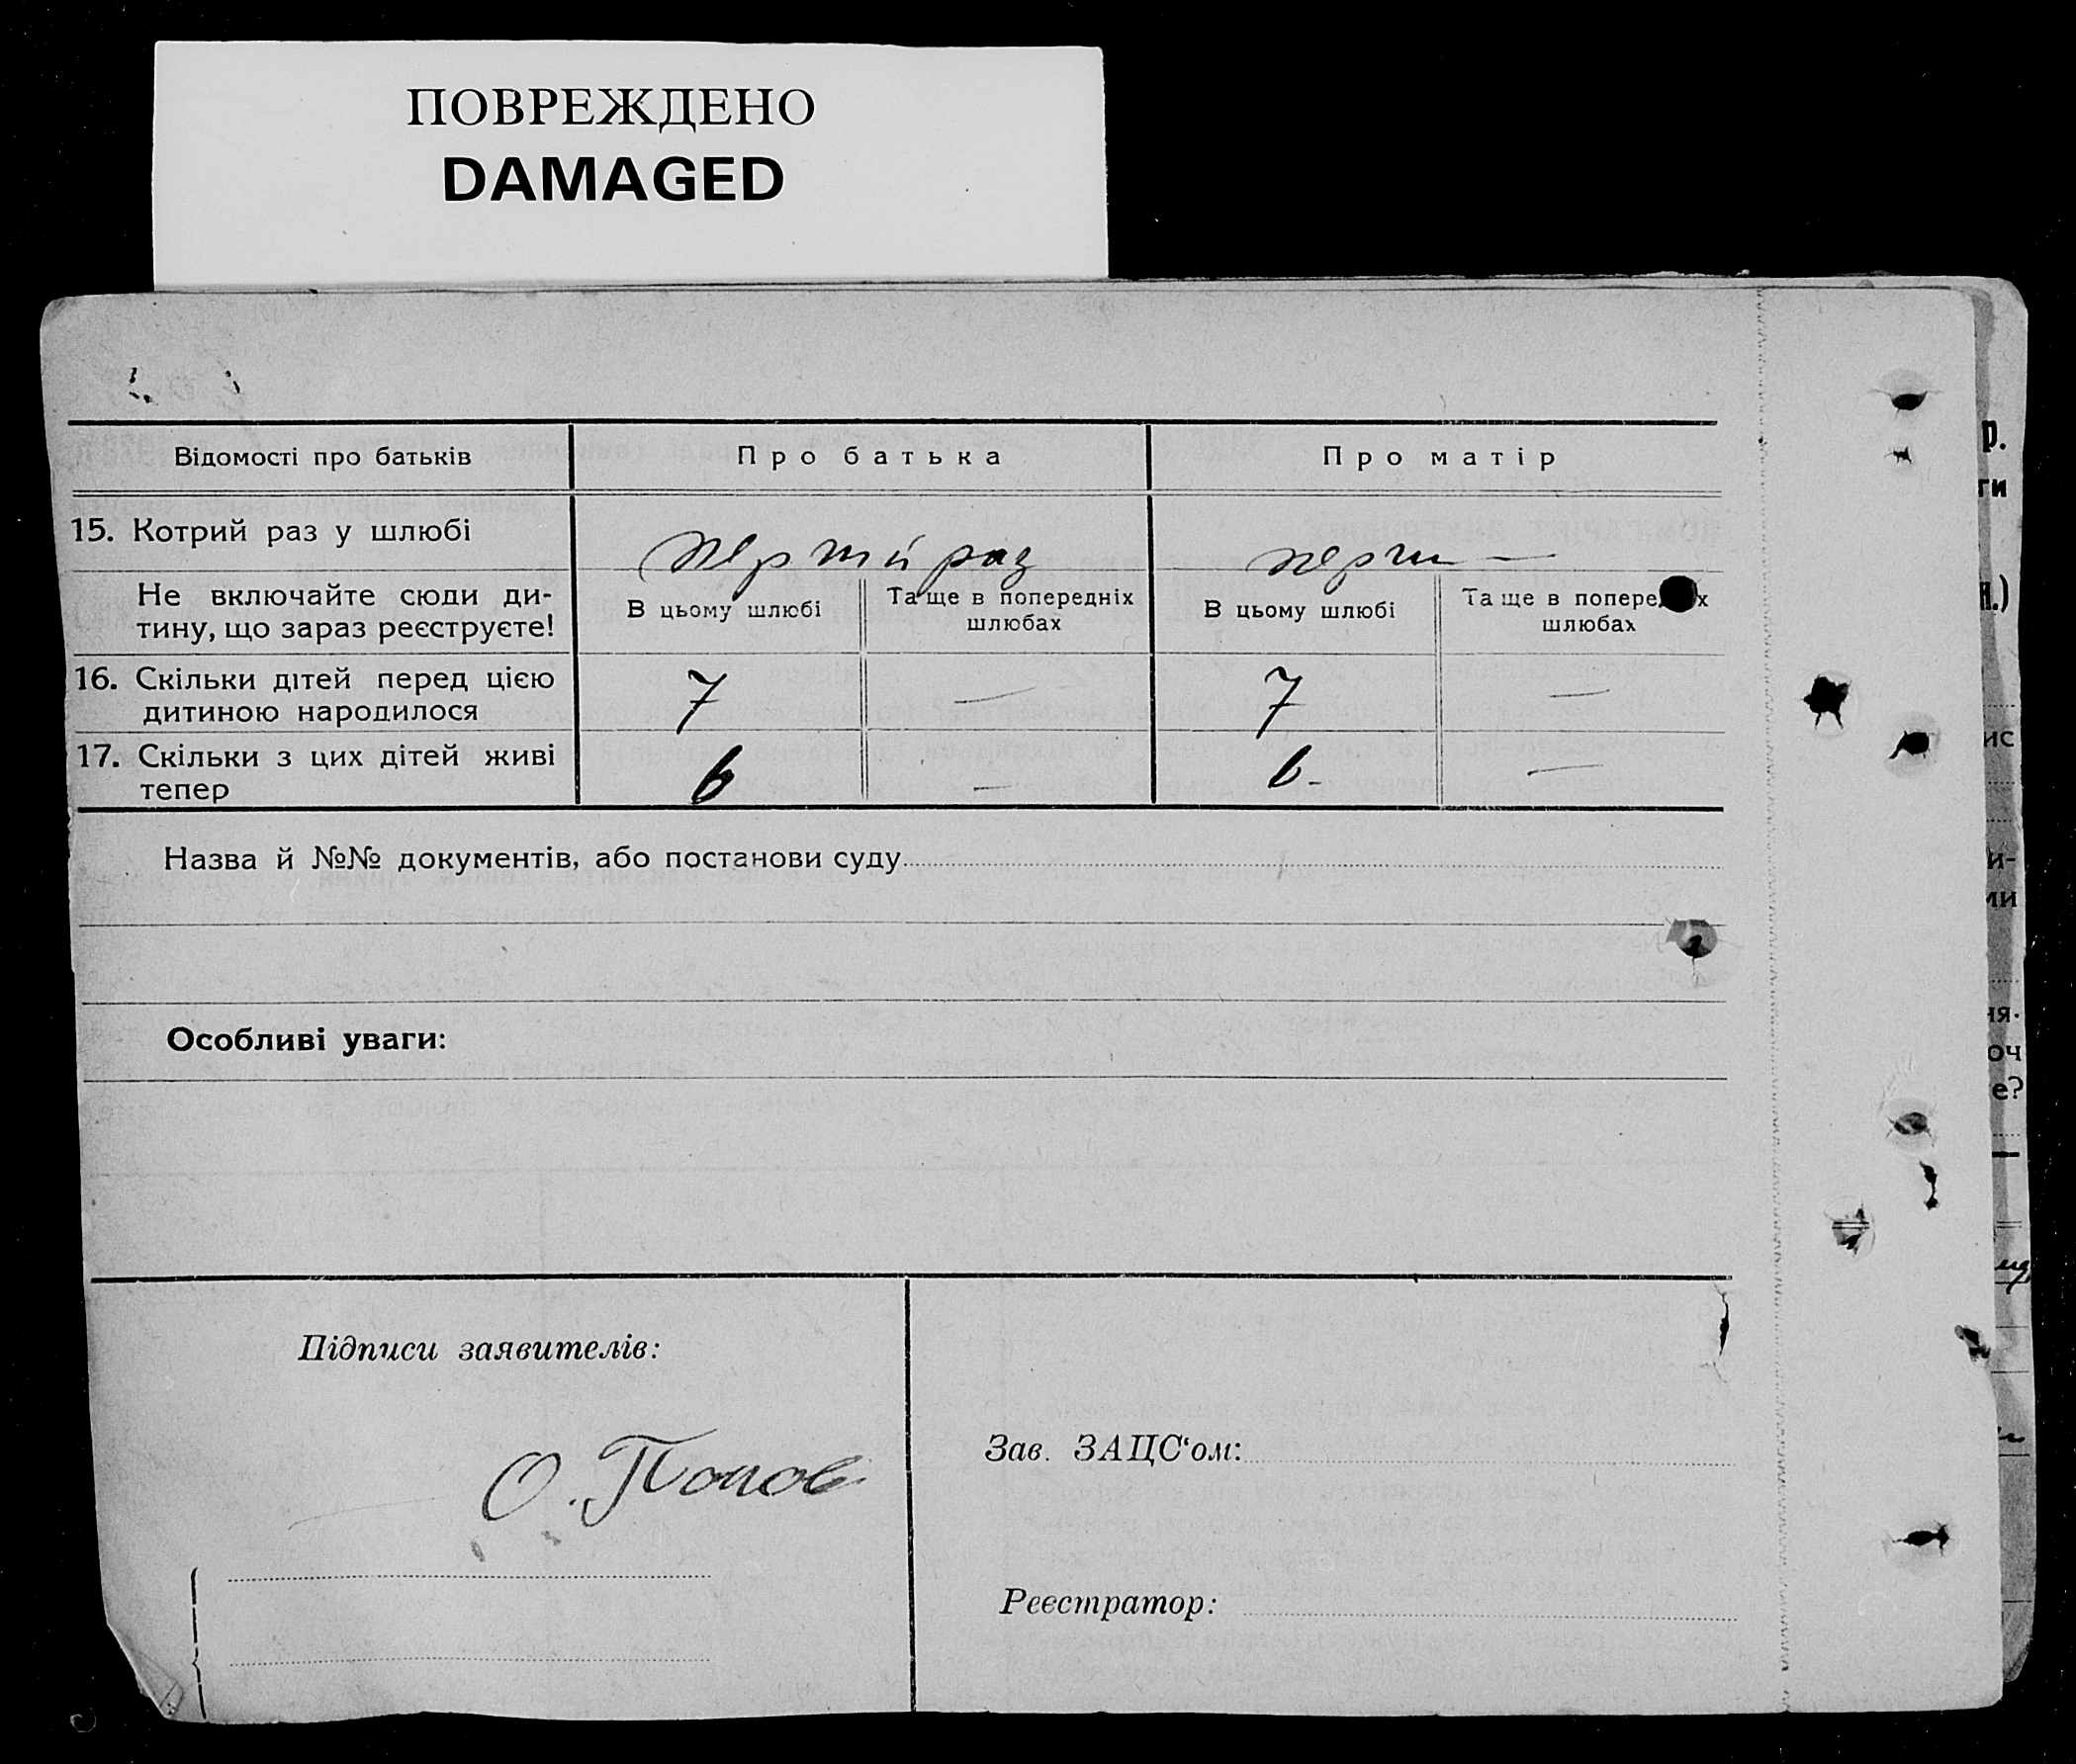 ПОВРЕЖДЕНО
DAMAGED
Відомості про батьків
Про батька
Про матір
15. Котрий раз у шлюбі
перший раз
перш —
Не включайте сюди ди-
тину, що зараз реєструєте!
В цьому шлюбі
Та ще в попередніх
шлюбах
В цьому шлюбі
Та ще в
шлюбах
16. Скільки дітей перед цією
дитиною народилося
7
—
7
—
17. Скільки з цих дітей живі
тепер
6
—
6 -
—
Назва й №№ документів, або постанови суду
Особливі уваги:
Підписи заявителів:
О. Попов
Зав. ЗАЦС‘ом:
Реєстратор: